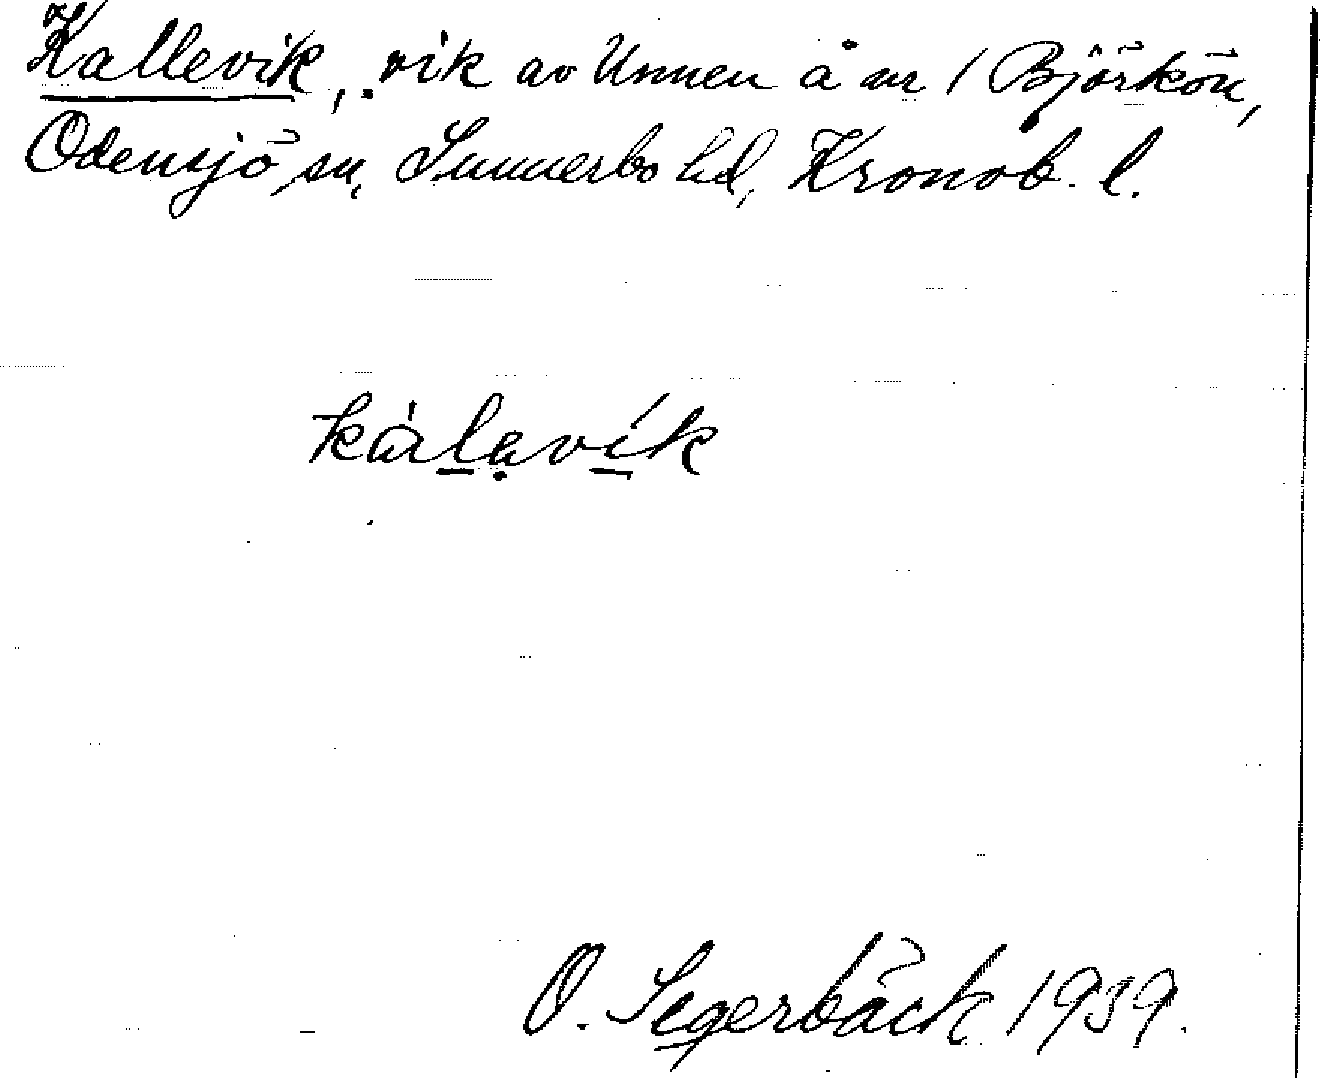 Kallevik, vik av Unnen å nr 1 Björkön,
Odensjö sn, Sunnerbo hd, Kronob. l.
kàlavík
O. Segerbäck 1939.